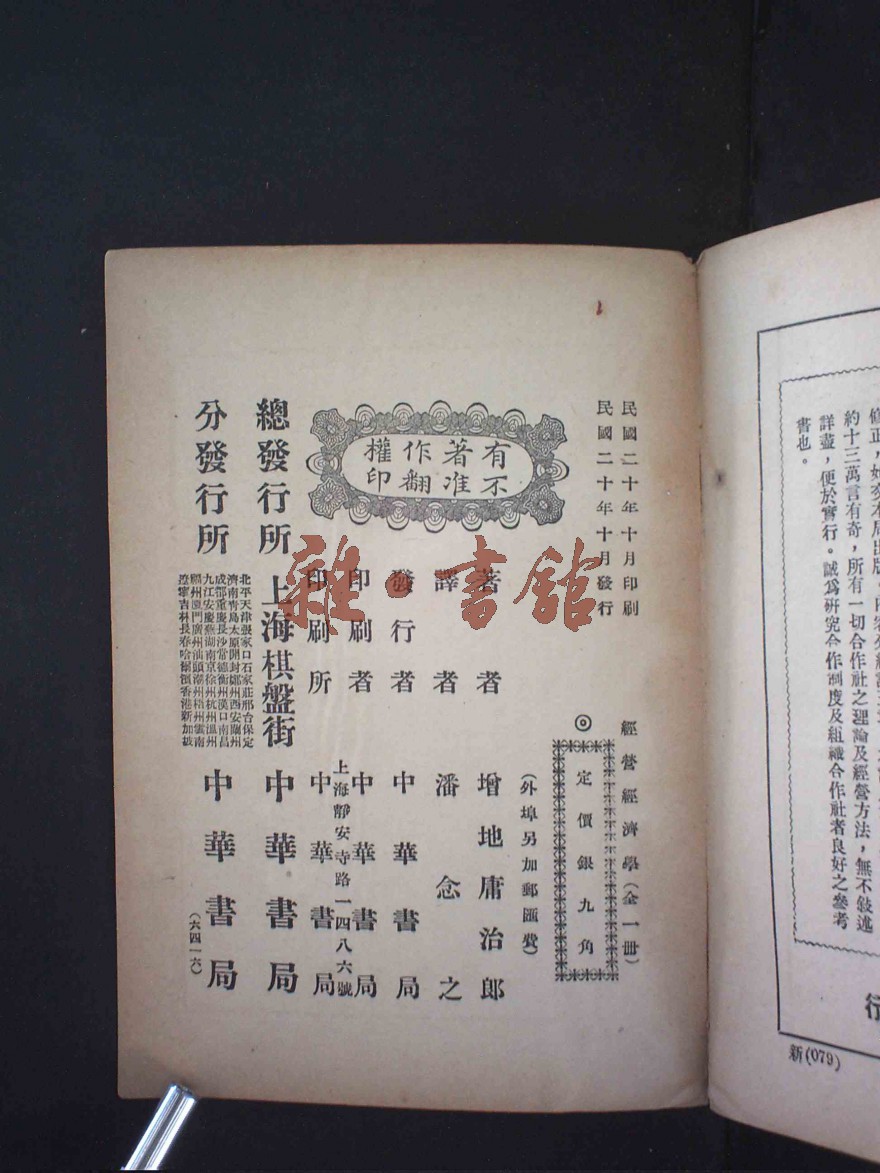 民國二十年十月印刷
民國二十年十月發行
經營經濟學(全一冊)
◎
定價銀九角
(外埠另加郵匯費)
有著作權
不准翻印
著者 增地庸治郎
譯者 潘念之
發行者 中華書局
印刷者 中華書局
上海靜安寺路一四八六號
印刷所 中華書局
總發行所 上海棋盤街 中華書局
分發行所 中華書局
北平天津張家口石家莊邢台保定
濟南青島太原開封鄭州西安蘭州
成都重慶長沙常德衡州漢口南昌
九江安慶蕪湖南京徐州杭州溫州
福州廈門廣州汕頭潮州梧州雲南
遼寧吉林長春哈爾濱香港新加坡
(六四一六)
雜·書館
約十三萬言有奇,所有一切合作社之理論及經營方法,無不敍述
詳盡,便於實行。誠爲硏究合作制度及組織合作社者良好之參考
書也。
行
新(079)